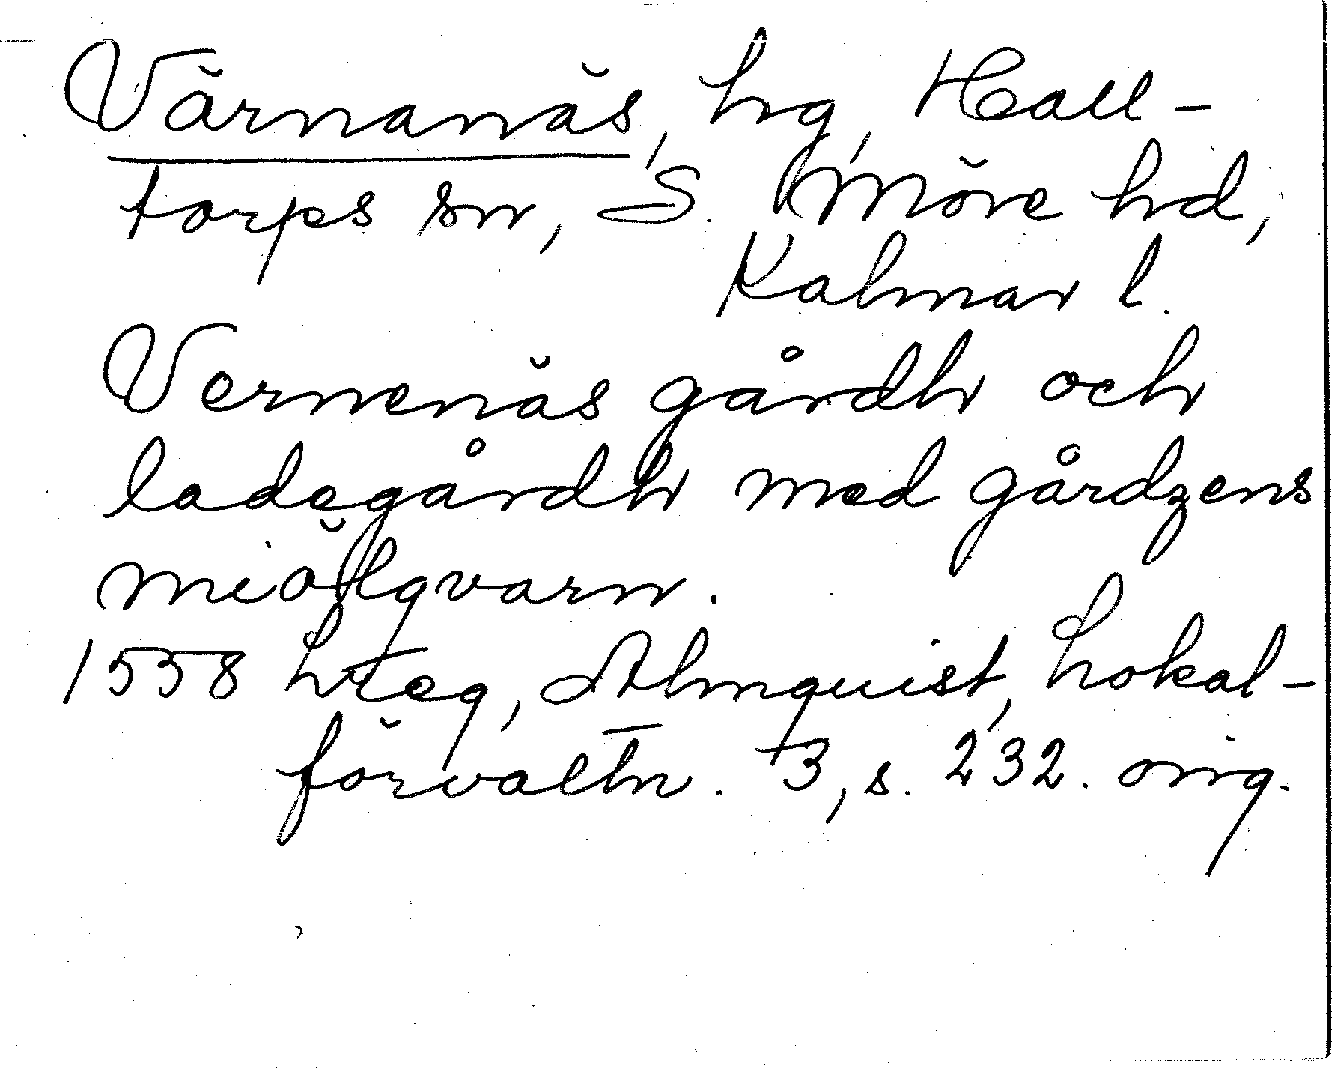 Värnanäs, hg, Hall-
torps sn, S. Möre hd,
Kalmar l.
Vernenäs gårdh och
ladegårdh med gårdzens
miölqvarn.
1558 Almquist, Lokal-
förvaltn. 3, s. 232. orig.